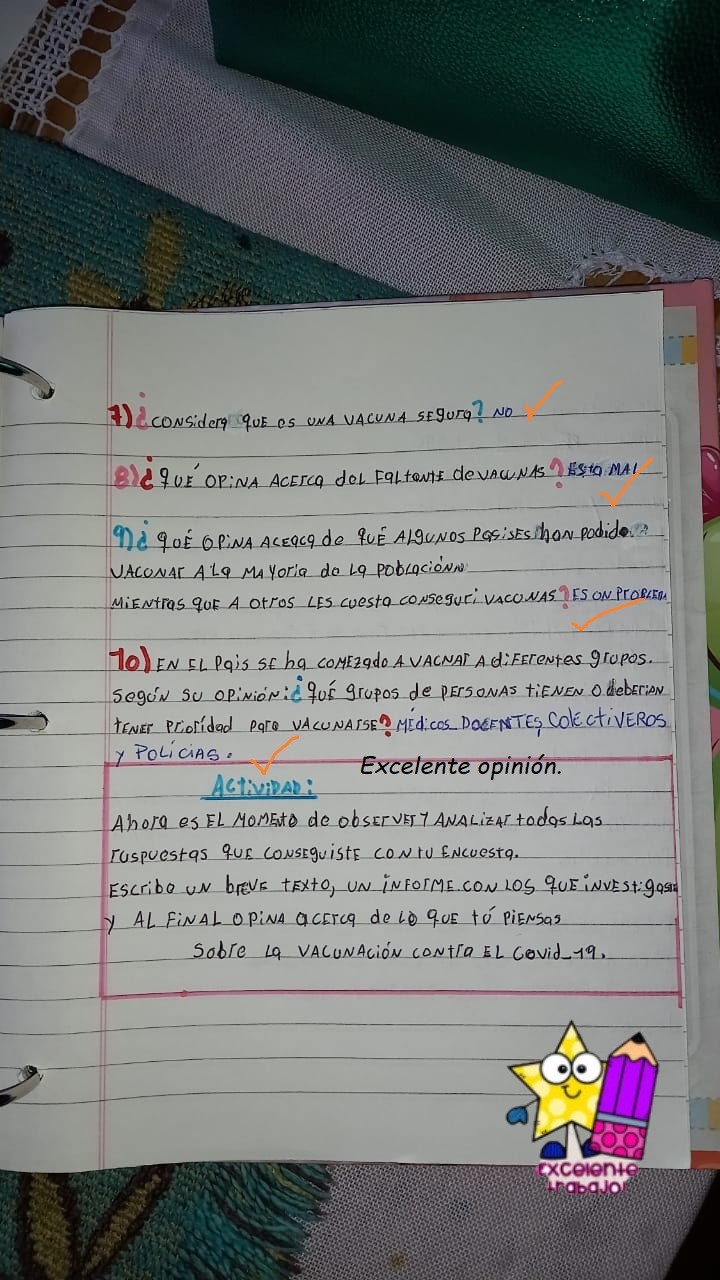 7) ¿CONSidera QUE es UNA VACUNA SEgura? NO
8) ¿QUÉ OPiNA ACErca del FaltantE de VACUNAS? Esta MAL
9) ¿QUÉ OPiNA ACERCA de QUÉ ALgUNOS Pasises han podido
VACUNAr A La MAYoria de La PobLacióNN
MiENtras QUE A Otros LES cuesta conseguri VACUNAS? ES UN PROBLEMA
10) EN EL Pais SE ha COMEzado A VACNAr A diFErentes grupos.
SEgÚN SU OPiNióN: ¿QUÉ grupos de PErSONAS tiENEN O debErIAN
tENEr Prioridad Para VACUNArSE? MÉdicos, DOCENTES, COLECtiVEROS
Y POLÍCIAS.
Excelente opinión.
ACtiViDAD:
Ahora es EL MOMENtO de obsErVEr Y ANALizAr todas Las
ruspuestas QUE CONSEguistE CON tU ENcuesta.
Escribo UN brEVE tExto, UN iNFORME.CON LOS QUE iNVEStigasa
Y AL FiNAL OPiNA acErca de LO QUE tÚ PiENsas
Sobre La VACUNAcióN CONtra EL Covid_19.
EXCelente
trabajo!